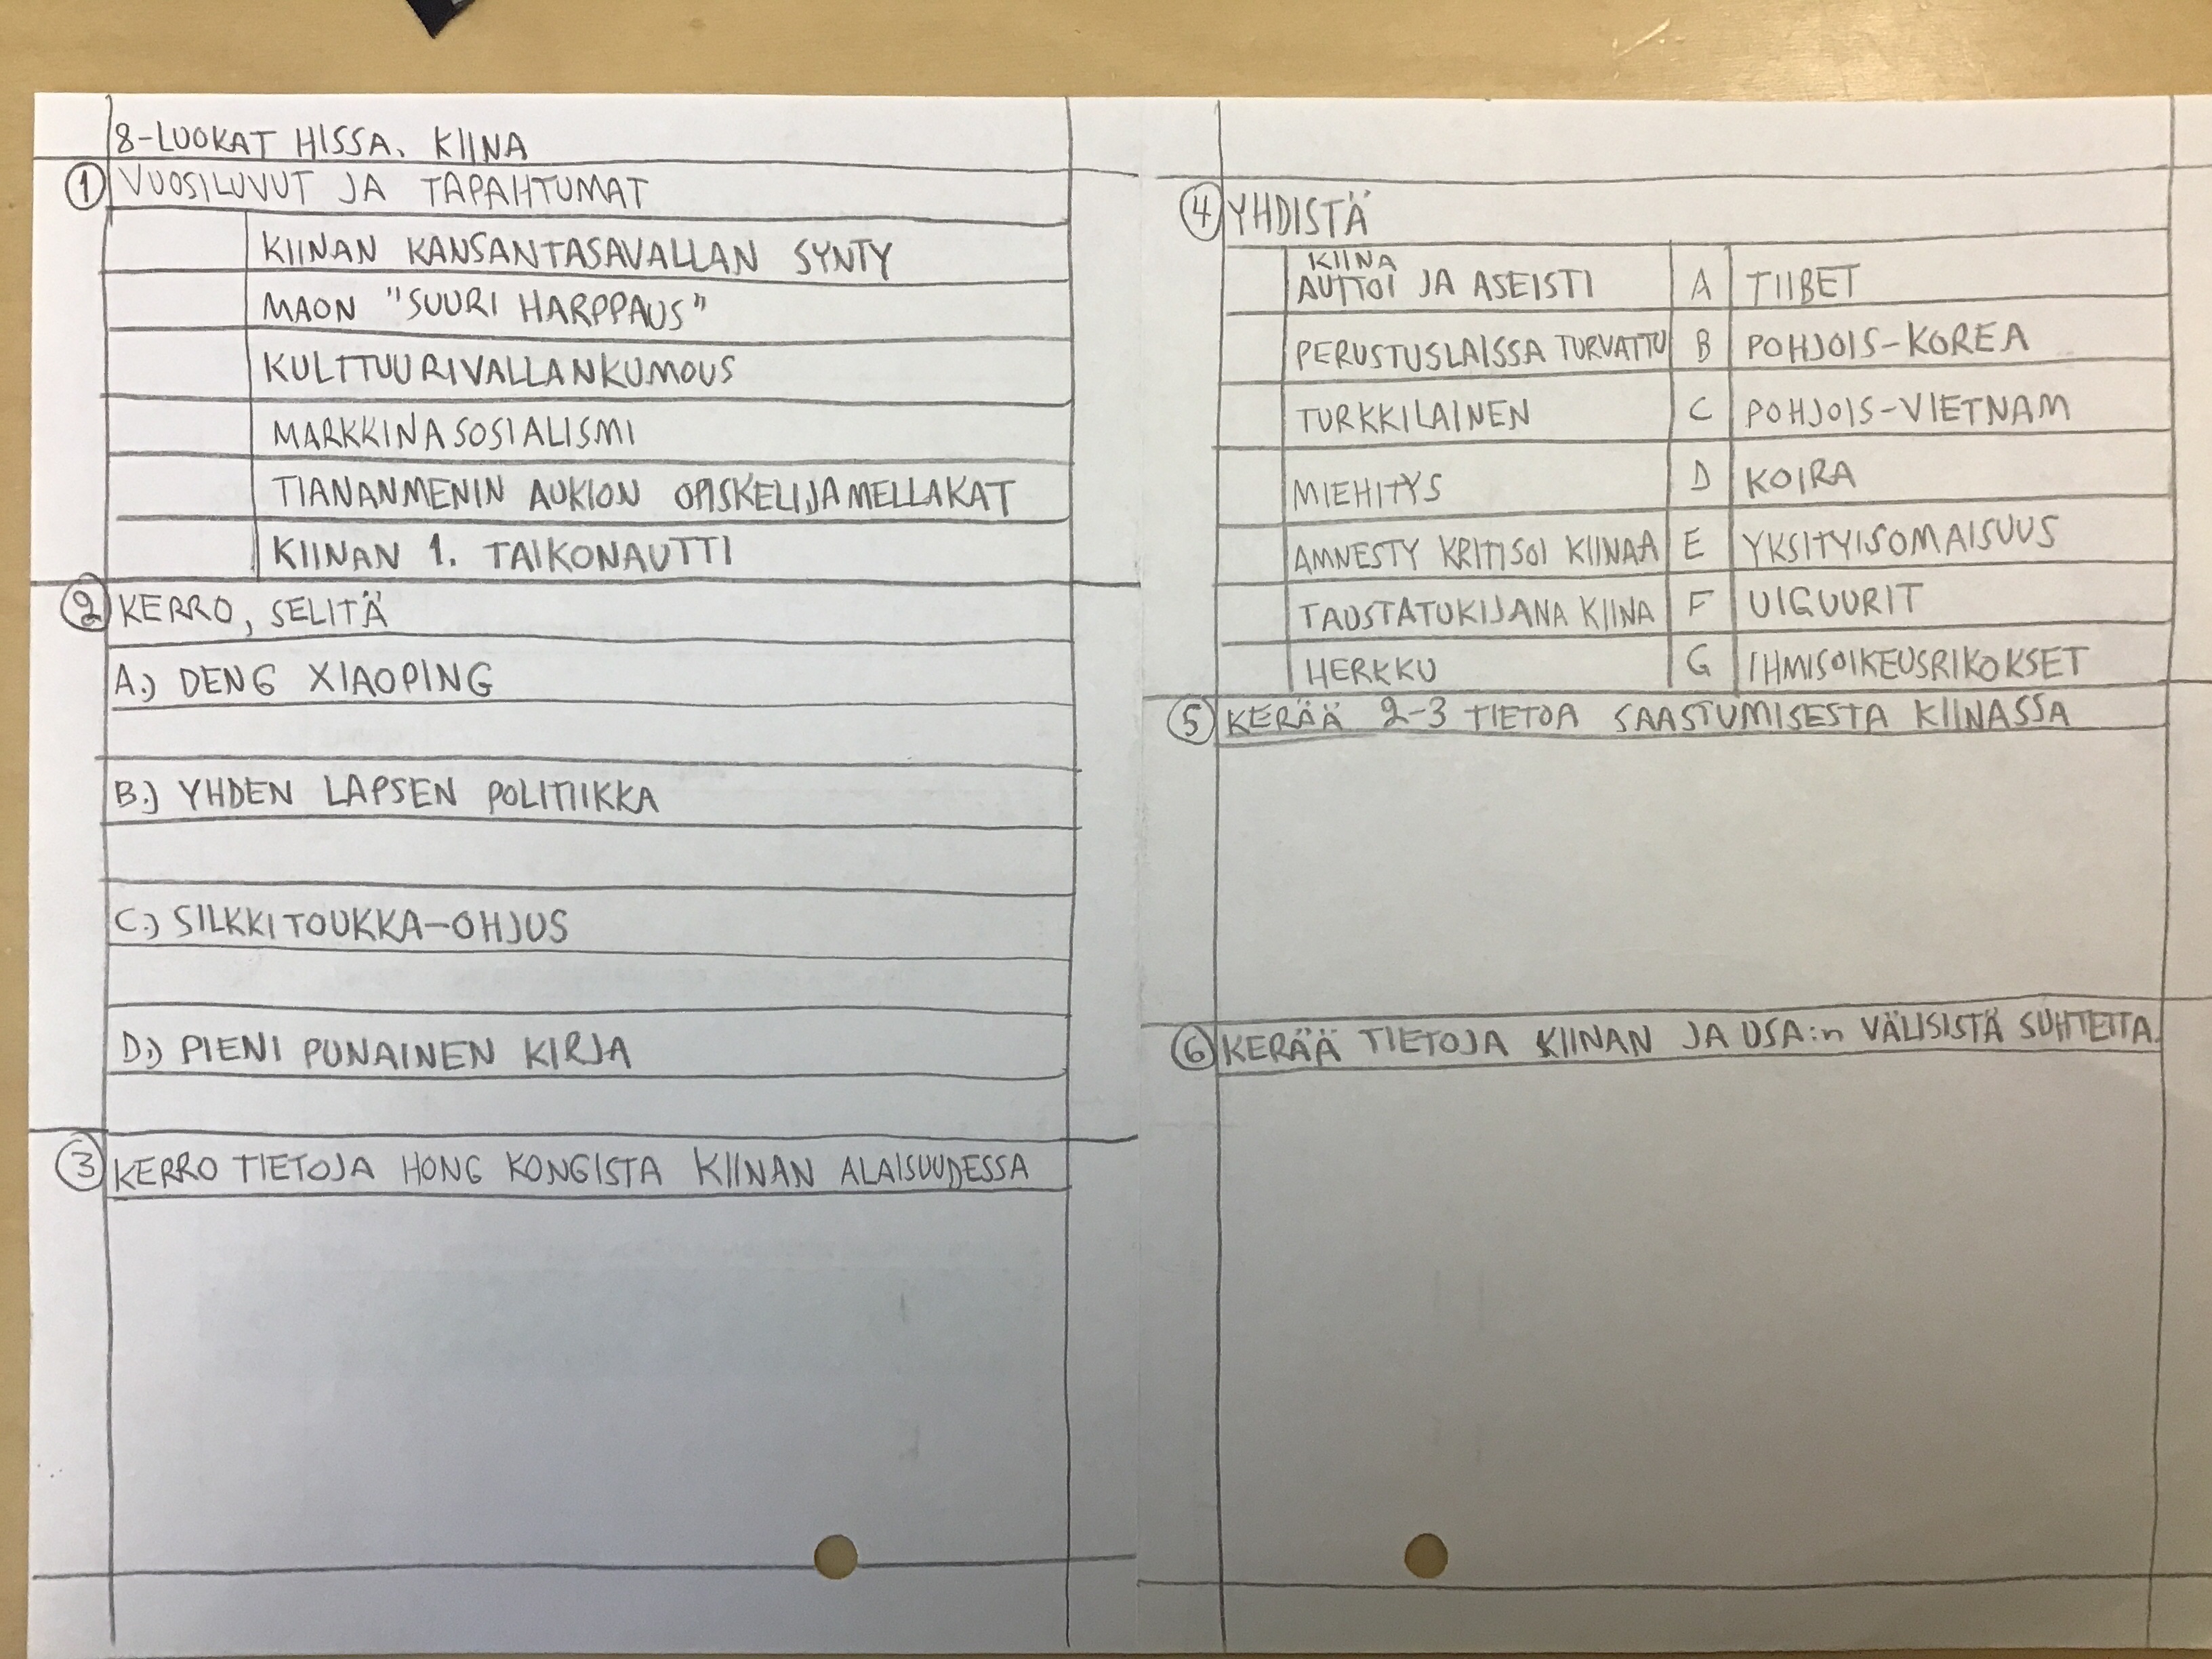 8-LUOKAT HISSA. KIINA
1 VUOSILUVUT JA TAPAHTUMAT
KIINAN KANSANTASAVALLAN SYNTY
MAON "SUURI HARPPAUS"
KULTTUURIVALLANKUMOUS
MARKKINASOSIALISMI
TIANANMENIN AUKION OPISKELIJAMELLAKAT
KIINAN 1. TAIKONAUTTI
2 KERRO, SELITÄ
A.) DENG XIAOPING
B.) YHDEN LAPSEN POLITIIKKA
C.) SILKKITOUKKA-OHJUS
D.) PIENI PUNAINEN KIRJA
3 KERRO TIETOJA HONG KONGISTA KIINAN ALAISUUDESSA
4 YHDISTÄ
KIINA
AUTTOI JA ASEISTI A TIIBET
PERUSTUSLAISSA TURVATTU B POHJOIS-KOREA
TURKKILAINEN C POHJOIS-VIETNAM
MIEHITYS D KOIRA
AMNESTY KRITISOI KIINAA E YKSITYISOMAISUUS
TAUSTATUKIJANA KIINA F UIGUURIT
HERKKU G IHMISOIKEUSRIKOKSET
5 KERÄÄ 2-3 TIETOA SAASTUMISESTA KIINASSA
6 KERÄÄ TIETOJA KIINAN JA USA:n VÄLISISTÄ SUHTEITA.